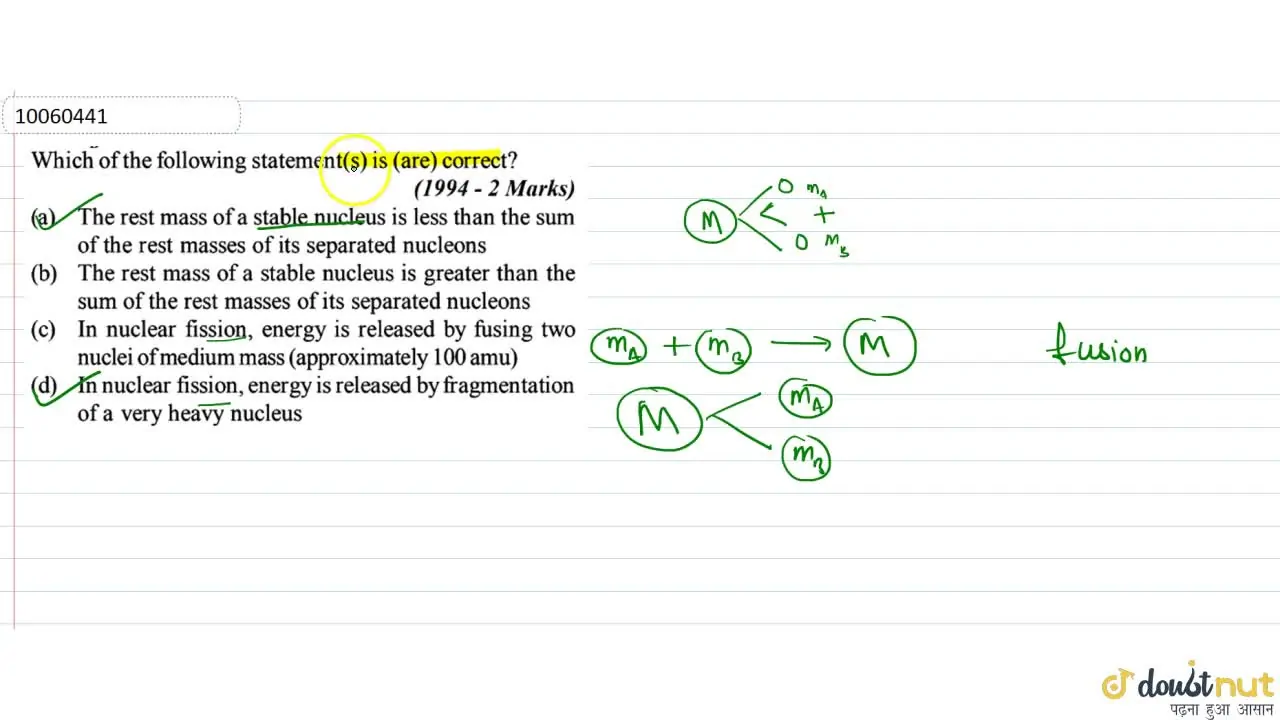 10060441
Which of the following statement(s) is (are) correct?
(1994 - 2 Marks)
(a) The rest mass of a stable nucleus is less than the sum
of the rest masses of its separated nucleons
(b) The rest mass of a stable nucleus is greater than the
sum of the rest masses of its separated nucleons
(c) In nuclear fission, energy is released by fusing two
nuclei of medium mass (approximately 100 amu)
(d) In nuclear fission, energy is released by fragmentation
of a very heavy nucleus
M < O mA
+
O mB
mA + mB → M fusion
M
mA
mB
doubtnut
पढ़ना हुआ आसान